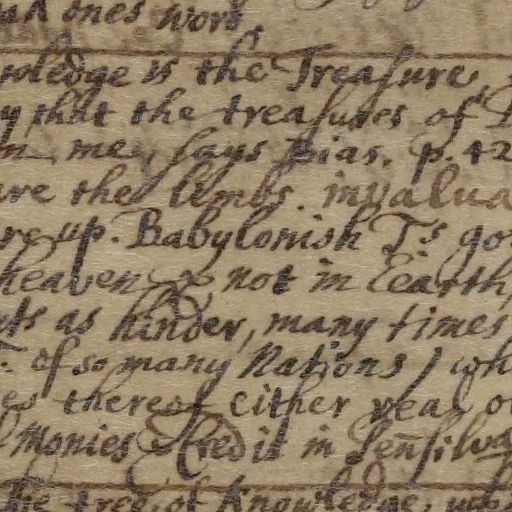 ones word
wledge is the Treasure
y that the treasures of
me, says Bias. p. 42
are the limbs. invalua
re up. Babylonish Ts go
heaven & not in Earth,
ts as hinder, many times
of so many Nations, wh
es thereof either year o
monies & Credit in Pensilva
the tree of Knowledge, wch